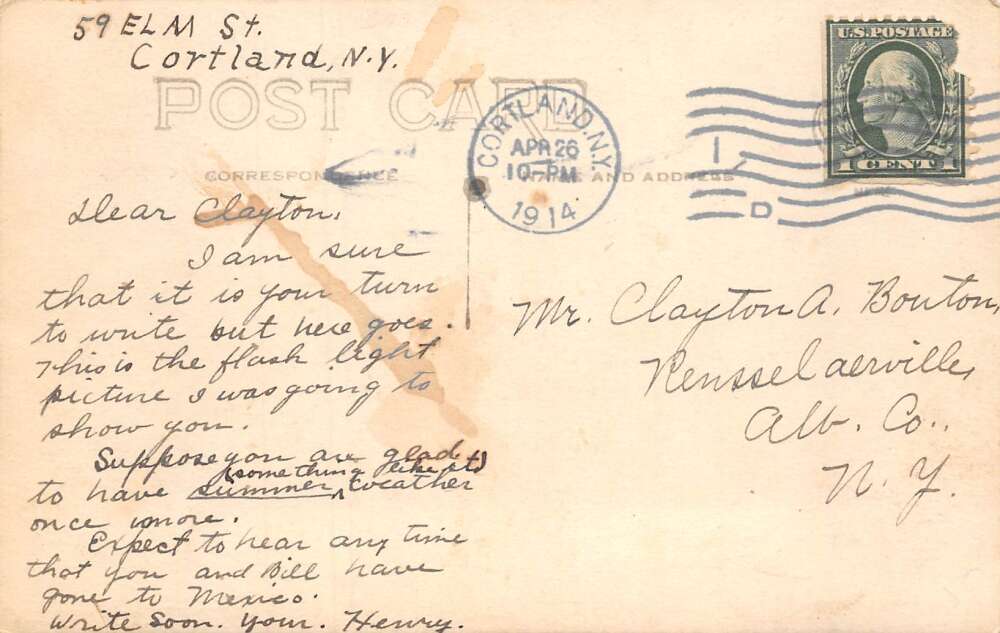 59 ELM St.
Cortland, N.Y.
POST CARD
U.S. POSTAGE
1 CENT 1
CORTLAND. N.Y.
APR 26
10-PM
1914
D
CORRESPONDENCE
NAME AND ADDRESS
HERE
Dear Clayton,
I am sure
that it is your turn
to write but here goes.
This is the flash light
picture I was going to
show you.
Suppose you are glad
(something like it)
to have summer weather
once more.
Expect to hear any time
that you and Bill have
gone to Mexico.
Write Soon. Your. Henry.
Mr. Clayton A. Bouton,
Rensselaerville,
Alb. Co.,
N.Y.